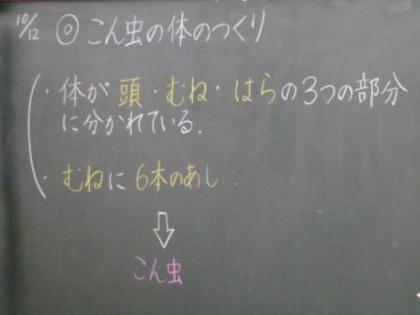 10/12 ◎ こん虫の体のつくり
・体が 頭・むね・はらの3つの部分
に分かれている.
・むねに 6本のあし
⇩
こん虫